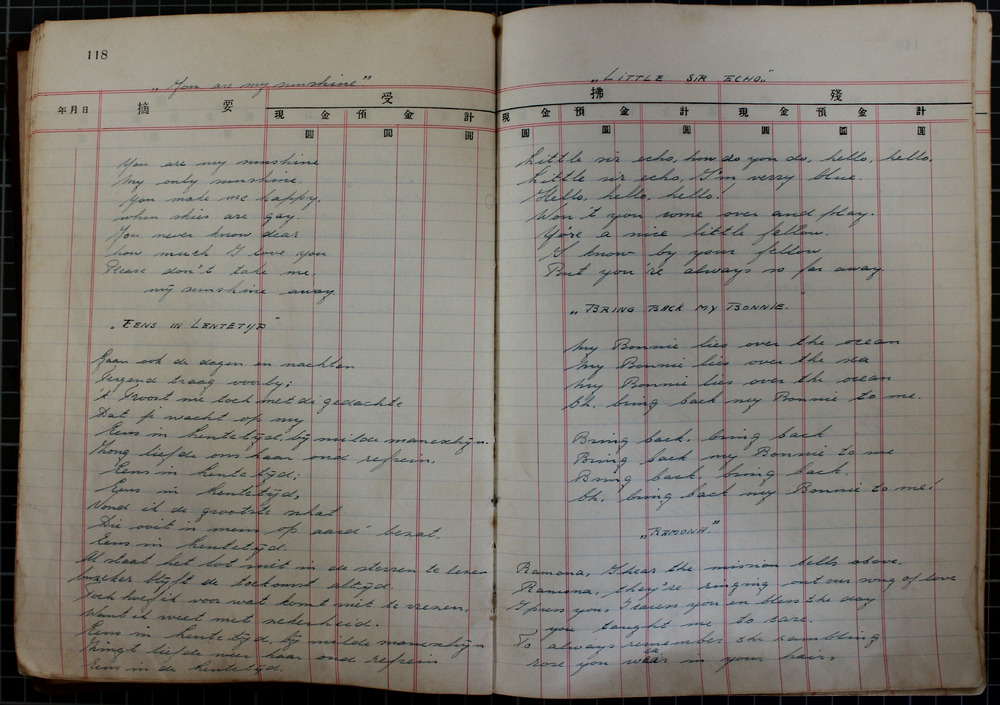 118
„You are my sunshine”
年月日 摘要 受
現金 預金 計
圓 圓 圓
You are my sunshine
my only sunshine.
You make me happy,
when skies are gay.
You never know dear
how much I love you
Please don't take me,
my sunshine away.
„EENS IN LENTETIJD”
Gaan ook de dagen en nachten
Tergend traag voorbij;
't troost me toch met de gedachte
Dat je wacht op mij
Eens in Lentetijd, bij milde maneschijn.
Zong liefde ons haar oud refrein.
Eens in Lentetijd;
Eens in Lentetijd,
Vond ik de grootste schat
Die ooit in mens op aard' bezat.
Eens in Lentetijd.
Al staat het lot niet in de sterren te lezen
Onzeker blijft de toekomst altijd.
Toch hoef ik voor wat komt niet te vrezen,
Want ik weet met zekerheid.
Eens in Lentetijd, bij milde maneschijn
Zingt liefde weer haar oud refrein
Eens in de Lentetijd.
„LITTLE SIR ECHO„
拂 殘
現金 預金 計 現金 預金 計
圓 圓 圓 圓 圓 圓
Little sir echo, how do you do, hello, hello,
Little sir echo, I'm verry blue.
Hello, hello, hello!
Won't you come over and play.
You're a nice little fellow.
I know by your fellow
But you're always so far away
„BRING BACK MY BONNIE.”
My Bonnie lies over the ocean
My Bonnie lies over the sea
My Bonnie lies over the ocean
Oh, bring back my Bonnie to me.
Bring back, bring back
Bring back my Bonnie to me
Bring back, bring back
Oh, bring back my Bonnie to me!
„RAMONA.”
Ramona, I hear the mission bells above,
Ramona, they're ringing out our song of love
I press you, I caress you en bless the day
you taught me to care.
To always remember the rambling
rose you wear in your hair.